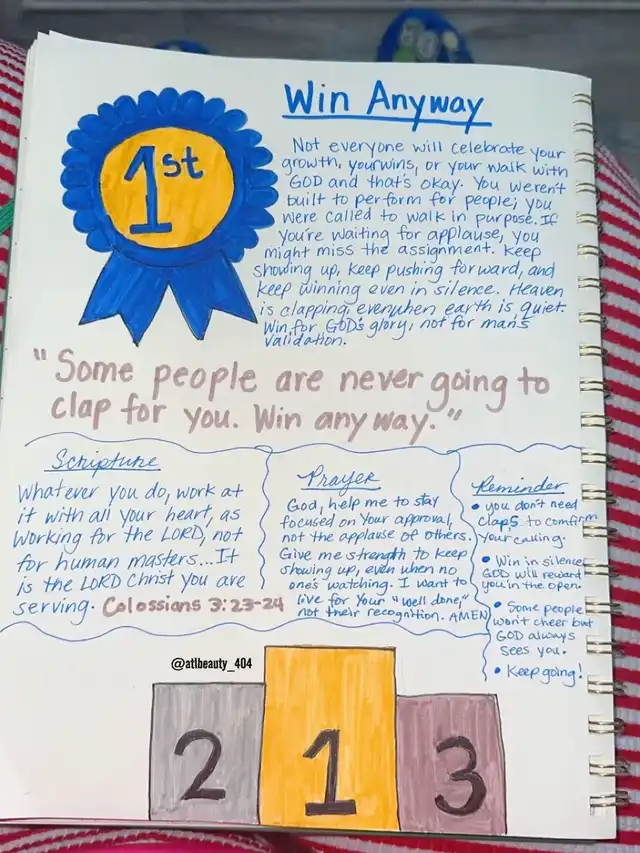 1st
Win Anyway
Not everyone will celebrate your
growth, your wins, or your walk with
GOD and that's okay. You weren't
built to perform for people; you
were called to walk in purpose. If
you're waiting for applause, you
might miss the assignment. Keep
showing up, keep pushing forward, and
keep winning even in silence. Heaven
is clapping even when earth is quiet.
Win for GOD's glory, not for man's
validation.
"Some people are never going to
clap for you. Win any way."
Scripture
Whatever you do, work at
it with all your heart, as
working for the LORD, not
for human masters...It
is the LORD Christ you are
serving. Colossians 3:23-24
Prayer
God, help me to stay
focused on Your approval,
not the applause of others.
Give me strength to keep
showing up, even when no
one's watching. I want to
live for Your "well done,"
not their recognition. AMEN
Reminder
• you don't need
claps to confirm
your calling.
• Win in silence
GOD will reward
you in the open.
• Some people
won't cheer but
GOD always
sees you.
• Keep going!
@atlbeauty_404
2
1
3